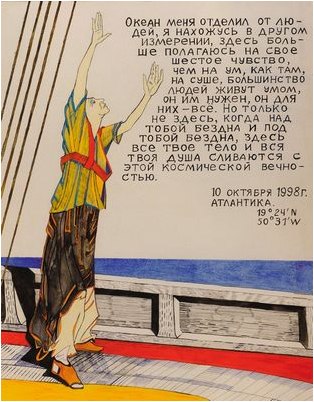 ОКЕАН МЕНЯ ОТДЕЛИЛ ОТ ЛЮ-
ДЕЙ, Я НАХОЖУСЬ В ДРУГОМ
ИЗМЕРЕНИИ, ЗДЕСЬ БОЛЬ-
ШЕ ПОЛАГАЮСЬ НА СВОЕ
ШЕСТОЕ ЧУВСТВО,
ЧЕМ НА УМ, КАК ТАМ,
НА СУШЕ, БОЛЬШИНСТВО
ЛЮДЕЙ ЖИВУТ УМОМ,
ОН ИМ НУЖЕН, ОН ДЛЯ
НИХ-ВСЁ. НО ТОЛЬКО
НЕ ЗДЕСЬ, КОГДА НАД
ТОБОЙ БЕЗДНА И ПОД
ТОБОЙ БЕЗДНА, ЗДЕСЬ
ВСЕ ТВОЕ ТЕЛО И ВСЯ
ТВОЯ ДУША СЛИВАЮТСЯ С
ЭТОЙ КОСМИЧЕСКОЙ ВЕЧНО-
СТЬЮ.
10 ОКТЯБРЯ 1998г.
АТЛАНТИКА.
19°24'N
50°31'W